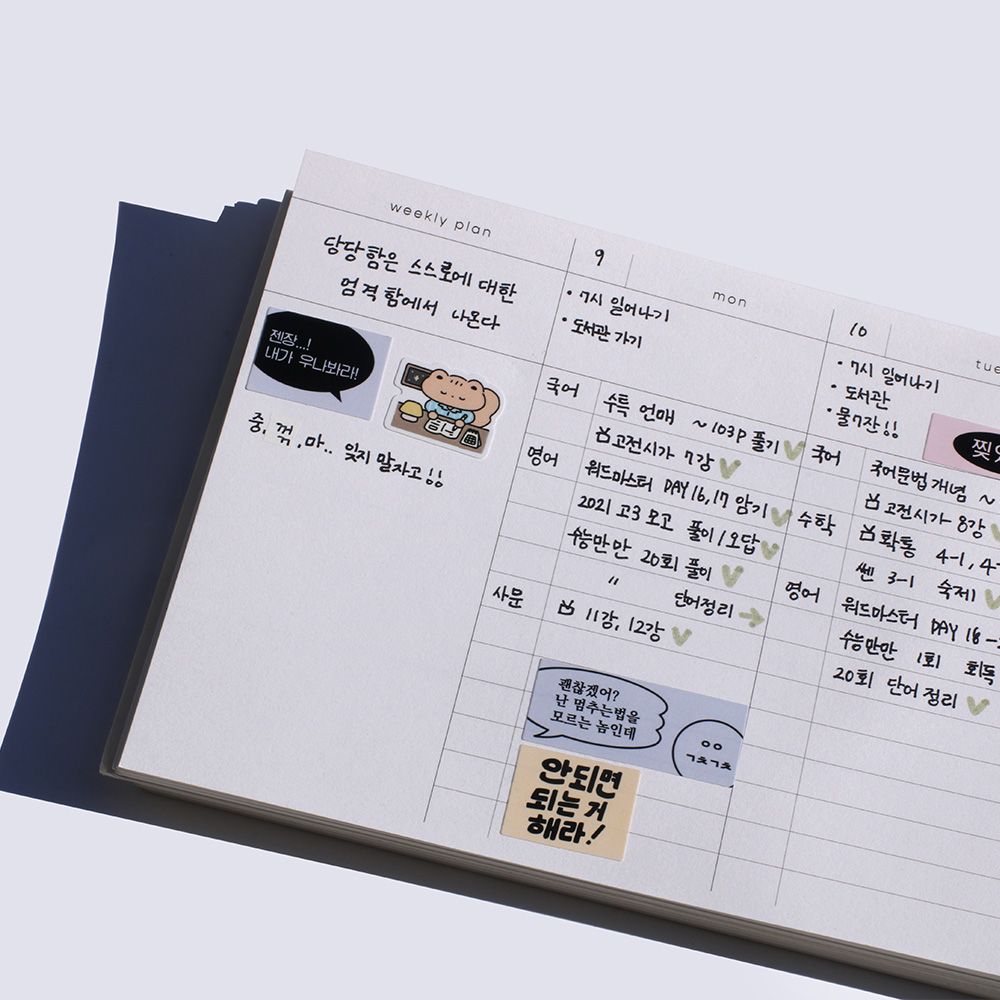 weekly plan
당당함은 스스로에 대한
엄격함에서 나온다
젠장...!
내가 우나봐라!
중, 꺾, 마.. 잊지 말자고!!
9
mon
• 7시 일어나기
• 도서관 가기
국어
수특 언매 ~103p 풀기
고전시가 7강
영어
워드마스터 DAY 16, 17 암기
2021 고3 모고 풀이/오답
수능만만 20회 풀이
〃 단어정리 →
사문
11강, 12강
괜찮겠어?
난 멈추는법을
모르는 놈인데
ㄱㅊㄱㅊ
안되면
되는거
해라!
10
tue
• 7시 일어나기
• 도서관
• 물 7잔!!
국어
국어문법 개념 ~
고전시가 8강
수학
확통 4-1, 4-
쎈 3-1 숙제
영어
워드마스터 DAY 18-
수능만만 1회 회독
20회 단어 정리